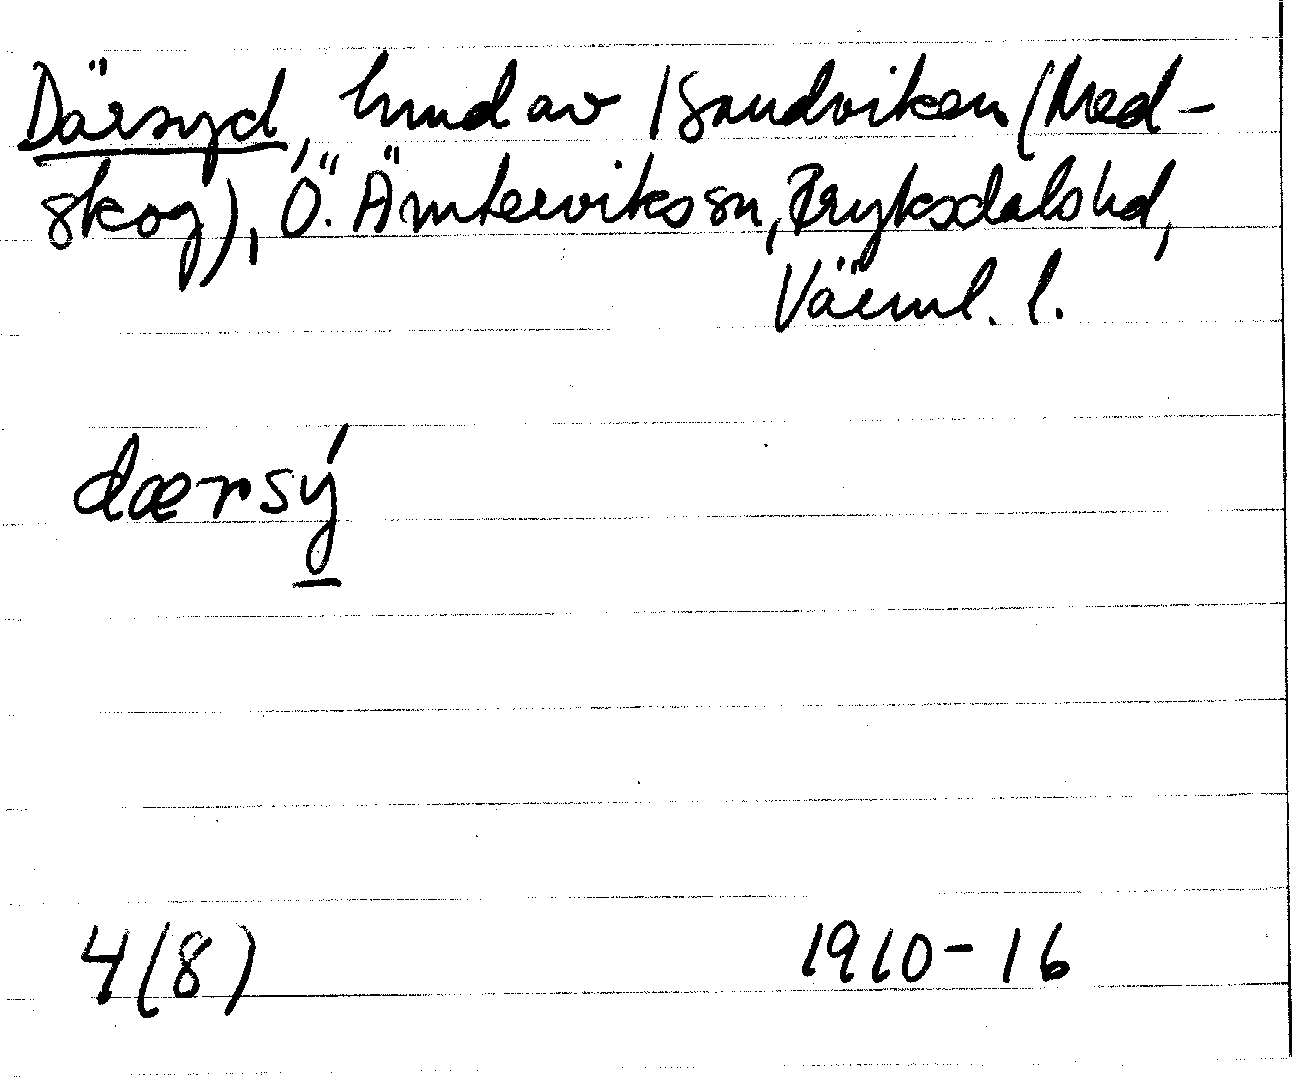 Därsyd, hmd av 1 Sandviken (Med-
skog), Ö. Ämterviks sn, Fryksdals hd,
Värml. l.
dærsý
4(8) 1910-16